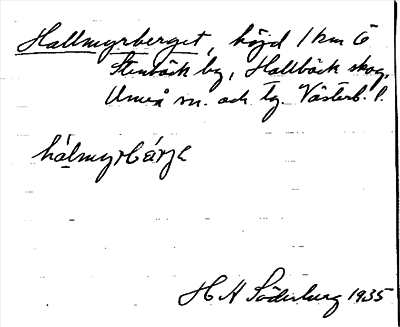 Hallmyrberget, höjd 1 km Ö
Stenbäck by, Hallbäck skog,
Umeå sn. och tg. Västerb. l.
hálmyrbárje
H H Söderberg 1935